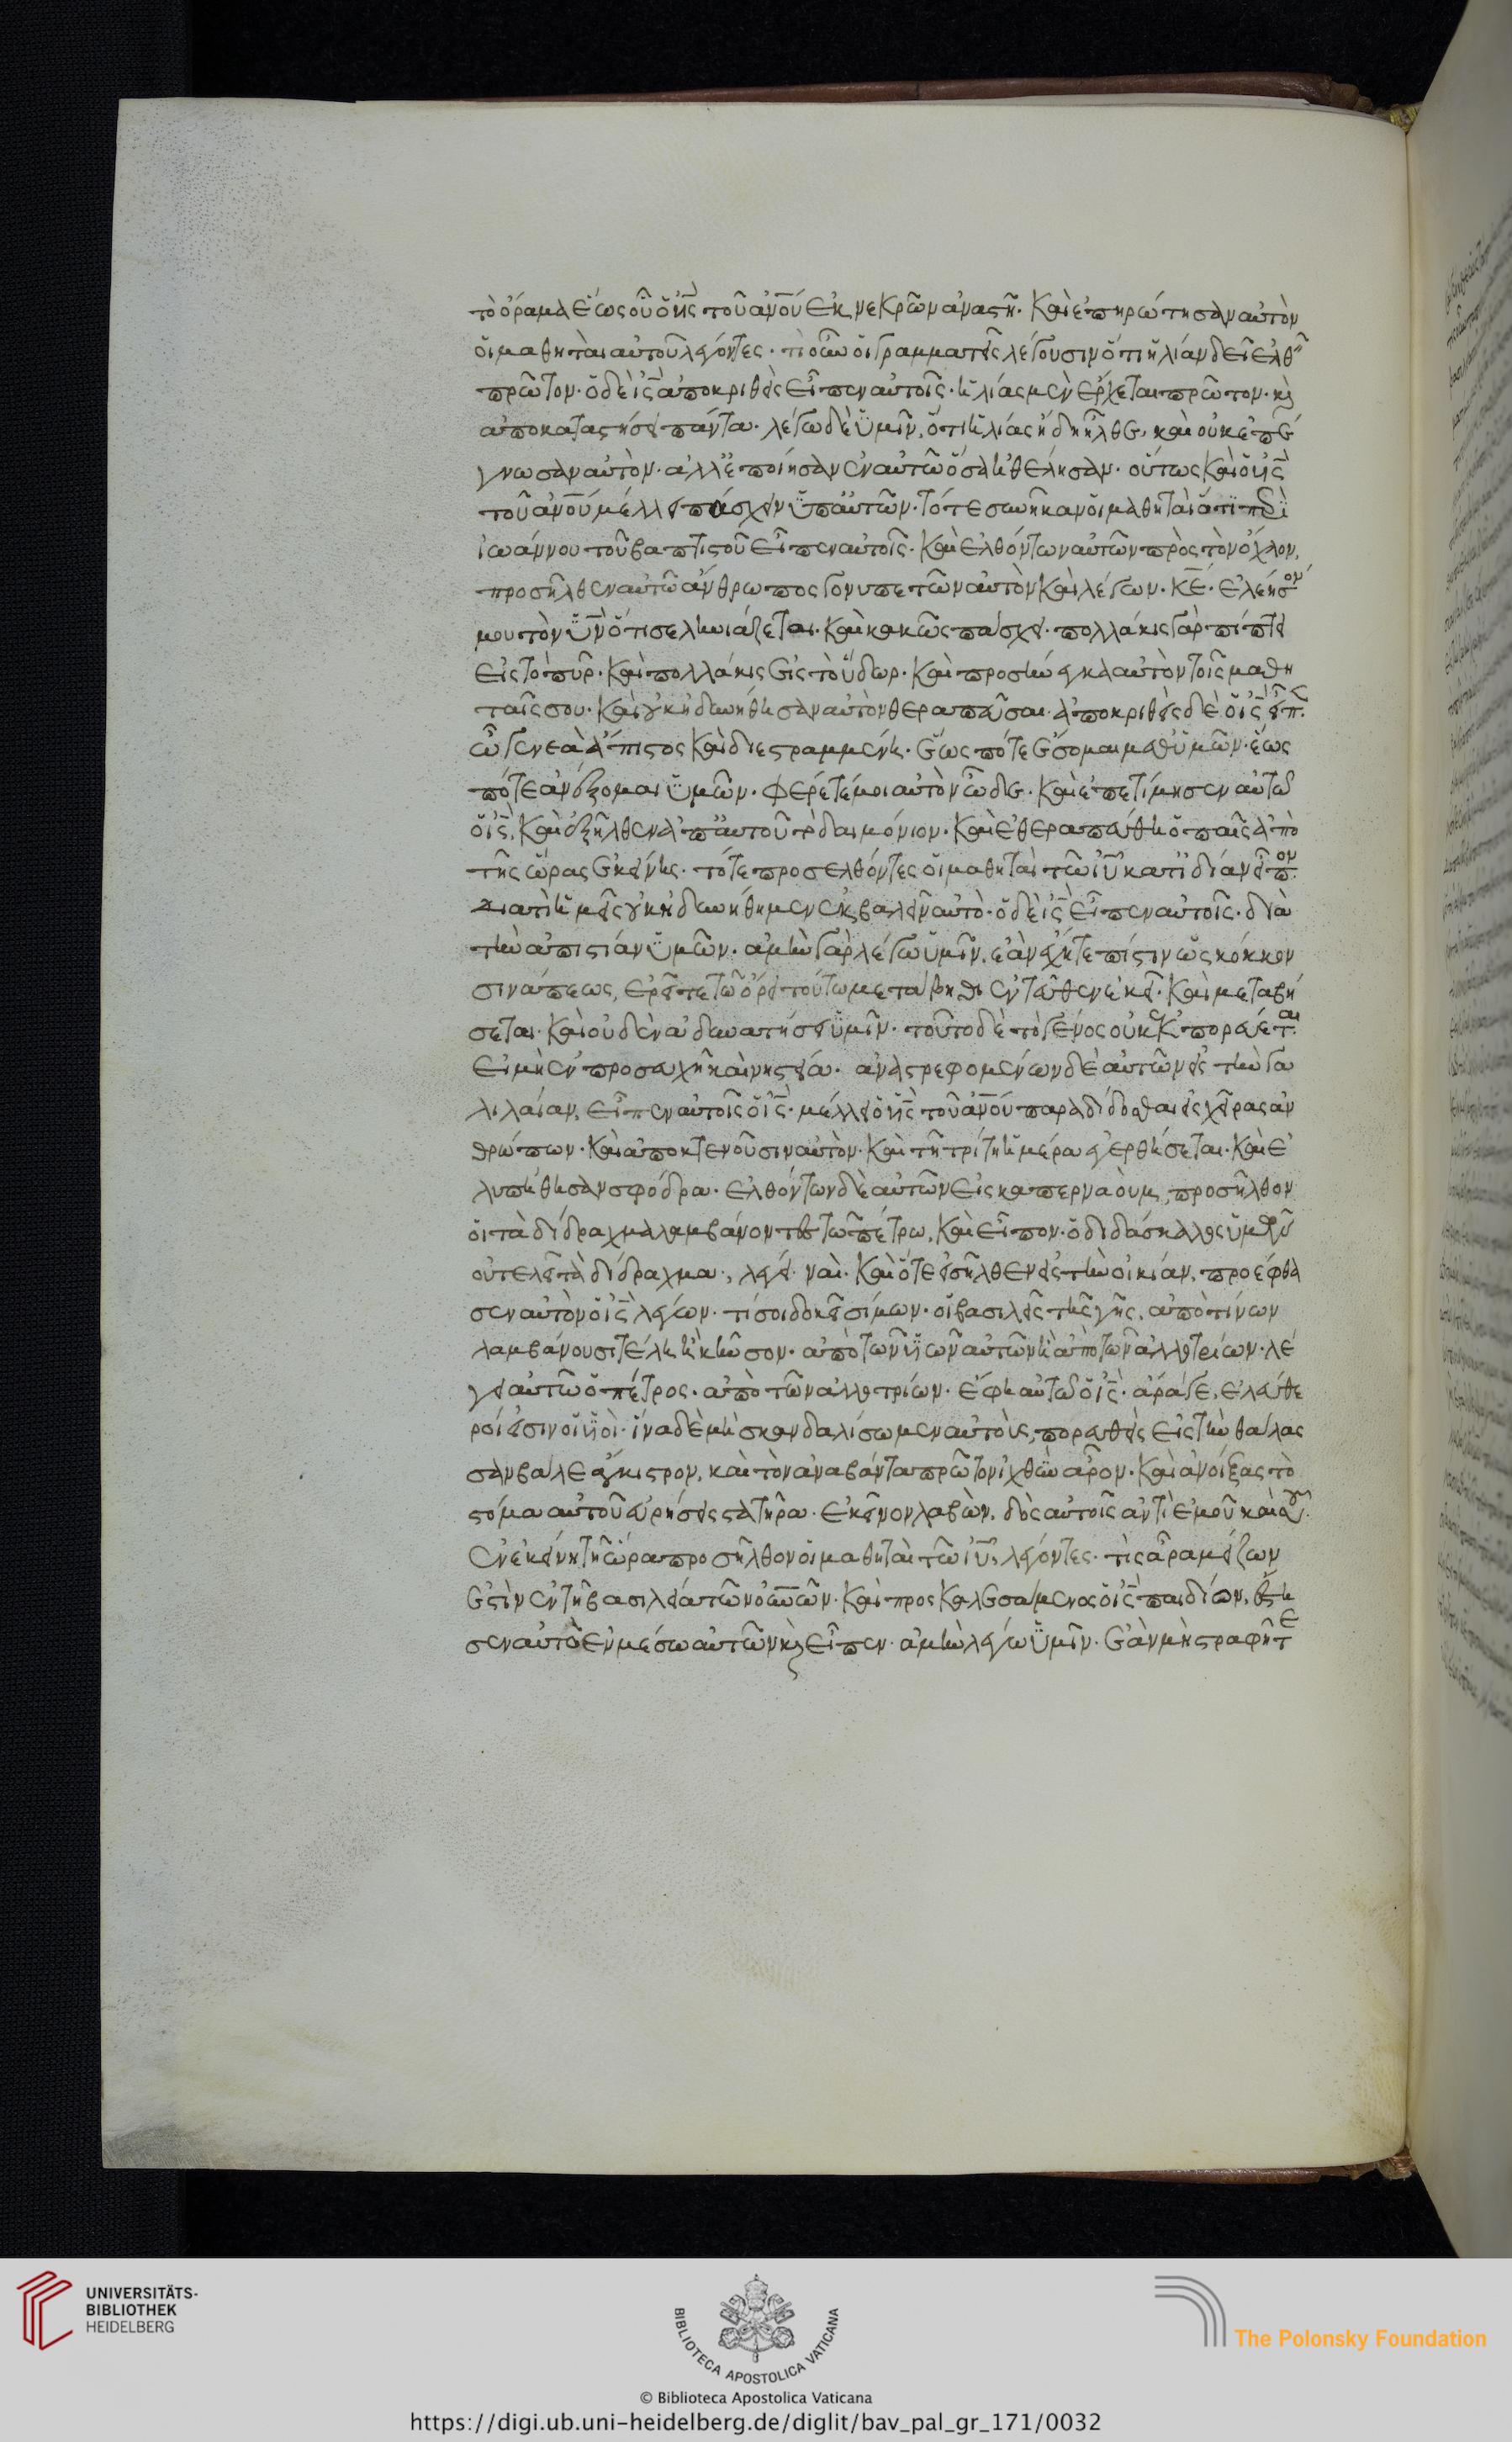 τὸ ὅραμα ἕως οὗ ὁ υἱς τοῦ ἀνου ἐκ νεκρῶν ἀναστῆ· καὶ ἐπηρώτησαν αὐτὸν
οἱ μαθηταὶ αὐτοῦ λέγοντες· τί οὖν οἱ γραμματεῖς λέγουσιν ὅτι ἠλίαν δεῖ ἐλθεῖν
πρῶτον· ὁ δὲ ις ἀποκριθεὶς εἶπεν αὐτοῖς· ἠλίας μὲν ἔρχεται πρῶτον· καὶ
ἀποκαταστήσει πάντα· λέγω δὲ ὑμῖν, ὅτι ἠλίας ἤδη ἦλθε, καὶ οὐκ ἐπέ
γνωσαν αὐτὸν· ἀλλ' ἐποίησαν ἐν αὐτῶ ὅσα ἠθέλησαν· οὕτως καὶ ὁ υἱς
τοῦ ἀνου μέλλει πάσχειν ὑπ' αὐτῶν· τότε συνῆκαν οἱ μαθηταὶ ὅτι περὶ
ἰωάννου τοῦ βαπτιστοῦ εἶπεν αὐτοῖς· καὶ ἐλθόντων αὐτῶν πρὸς τὸν ὄχλον,
προσῆλθεν αὐτῶ ἄνθρωπος γονυπετῶν αὐτὸν καὶ λέγων· κε· ἐλέησον
μου τὸν υν ὅτι σεληνιάζεται· καὶ κακῶς πάσχει· πολλάκις γὰρ πίπτει
εἰς τὸ πῦρ· καὶ πολλάκις εἰς τὸ ὕδωρ· καὶ προσήνεγκα αὐτὸν τοῖς μαθη
ταῖς σου· καὶ οὐκ ἠδυνήθησαν αὐτὸν θεραπεῦσαι· ἀποκριθεὶς δὲ ὁ ις εἶπεν·
ὦ γενεὰ ἄπιστος καὶ διεστραμμένη· ἕως πότε ἔσομαι μεθ' ὑμῶν· ἕως
πότε ἀνέξομαι ὑμῶν· φέρετέ μοι αὐτὸν ὧδε· καὶ ἐπετίμησεν αὐτῶ
ὁ ις, καὶ ἐξῆλθεν ἀπ' αὐτοῦ τὸ δαιμόνιον· καὶ ἐθεραπεύθη ὁ παῖς ἀπὸ
τῆς ὥρας ἐκείνης· τότε προσελθόντες οἱ μαθηταὶ τῶ ιυ κατ' ἰδίαν εἶπον·
διατί ἡμεῖς οὐκ ἠδυνήθημεν ἐκβαλεῖν αὐτὸ· ὁ δὲ ις εἶπεν αὐτοῖς· διὰ
τὴν ἀπιστίαν ὑμῶν· ἀμὴν γὰρ λέγω ὑμῖν, ἐὰν ἔχητε πίστιν ὡς κόκκον
σινάπεως, ἐρεῖτε τῶ ὄρει τούτω μετάβηθι ἐντεῦθεν ἐκεῖ· καὶ μεταβή
σεται· καὶ οὐδὲν ἀδυνατήσει ὑμῖν· τοῦτο δὲ τὸ γένος οὐκ ἐκπορεύεται
εἰ μὴ ἐν προσευχῆ καὶ νηστεία· ἀναστρεφομένων δὲ αὐτῶν εἰς τὴν γα
λιλαίαν, εἶπεν αὐτοῖς ὁ ις· μέλλει ὁ υἱς τοῦ ἀνου παραδίδοσθαι εἰς χεῖρας ἀν
θρώπων· καὶ ἀποκτενοῦσιν αὐτὸν· καὶ τῆ τρίτη ἡμέρα ἐγερθήσεται· καὶ ἐ
λυπήθησαν σφόδρα· ἐλθόντων δὲ αὐτῶν εἰς καπερναούμ, προσῆλθον
οἱ τὰ δίδραχμα λαμβάνοντες τῶ πέτρω, καὶ εἶπον· ὁ διδάσκαλος ὑμῶν
οὐ τελεῖ τὰ δίδραχμα·, λέγει· ναὶ· καὶ ὅτε εἰσῆλθεν εἰς τὴν οἰκίαν, προέφθα
σεν αὐτὸν ὁ ις λέγων· τί σοι δοκεῖ σίμων· οἱ βασιλεῖς τῆς γῆς, ἀπὸ τίνων
λαμβάνουσι τέλη ἢ κῆνσον· ἀπὸ τῶν υἱῶν αὐτῶν ἢ ἀπὸ τῶν ἀλλοτρίων· λέ
γει αὐτῶ ὁ πέτρος· ἀπὸ τῶν ἀλλοτρίων· ἔφη αὐτῶ ὁ ις· ἄρά γε, ἐλεύθε
ροί εἰσιν οἱ υἱοὶ· ἵνα δὲ μὴ σκανδαλίσωμεν αὐτοὺς, πορευθεὶς εἰς τὴν θάλασ
σαν βάλε ἄγκιστρον, καὶ τὸν ἀναβάντα πρῶτον ἰχθὺν ἆρον· καὶ ἀνοίξας τὸ
στόμα αὐτοῦ εὑρήσεις στατῆρα· ἐκεῖνον λαβὼν, δὸς αὐτοῖς ἀντὶ ἐμοῦ καὶ σοῦ·
ἐν ἐκείνη τῆ ὥρα προσῆλθον οἱ μαθηταὶ τῶ ιυ, λέγοντες· τίς ἄρα μείζων
ἐστὶν ἐν τῆ βασιλεία τῶν οὐνῶν· καὶ προσκαλεσάμενος ὁ ις παιδίον, ἔστη
σεν αὐτὸ ἐν μέσω αὐτῶν καὶ εἶπεν· ἀμὴν λέγω ὑμῖν· ἐὰν μὴ στραφῆτε
UNIVERSITÄTS-
BIBLIOTHEK
HEIDELBERG
BIBLIOTECA APOSTOLICA VATICANA
The Polonsky Foundation
© Biblioteca Apostolica Vaticana
https://digi.ub.uni-heidelberg.de/diglit/bav_pal_gr_171/0032